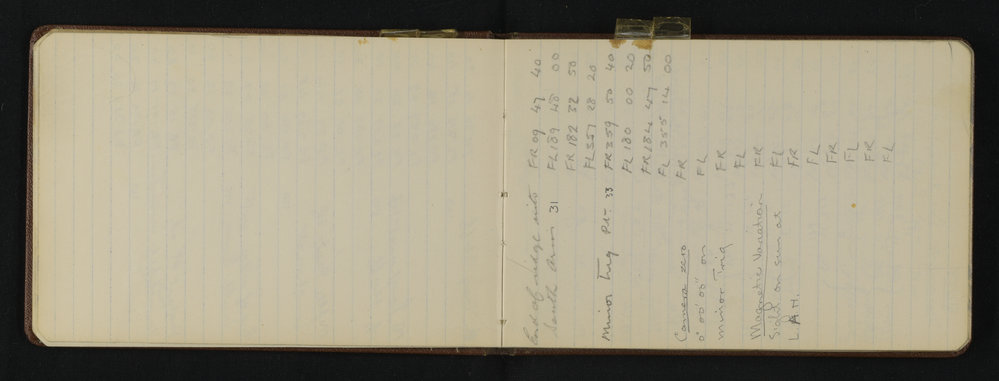 End of ridge into FR 09 47 40
South Arm 31 FL 189 48 00
FR 182 32 50
FL 357 28 20
Minor Trig Pt. 33 FR 359 50 40
FL 180 00 20
FR 184 47 50
FL 355 14 00
Camera zero FR
0° 00' 00" on FL
minor Trig FR
FL
Magnetic Variation FR
Sight on sun at FL
L.A.H. FR
FL
FR
FL
FR
FL